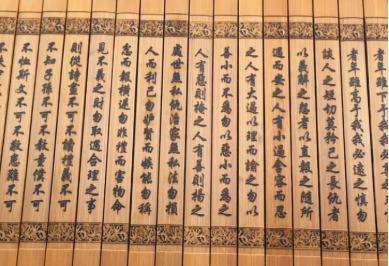 者年雖高于我我必遠之慎勿
談人之短切莫矜己之長仇者
以義解之怨者以直報之隨所
遇而安之人有小過含容而忍
之人有大過以理而諭之勿以
善小而不為勿以惡小而為之
人有惡則掩之人有善則揚之
處世無私仇治家無私法勿損
人而利己勿妒賢而嫉能勿稱
忿而報橫逆勿非禮而害物命
見不義之財勿取遇合理之事
則從詩書不可不讀禮義不可
不知子孫不可不教童僕不可
不恤斯文不可不敬患難不可